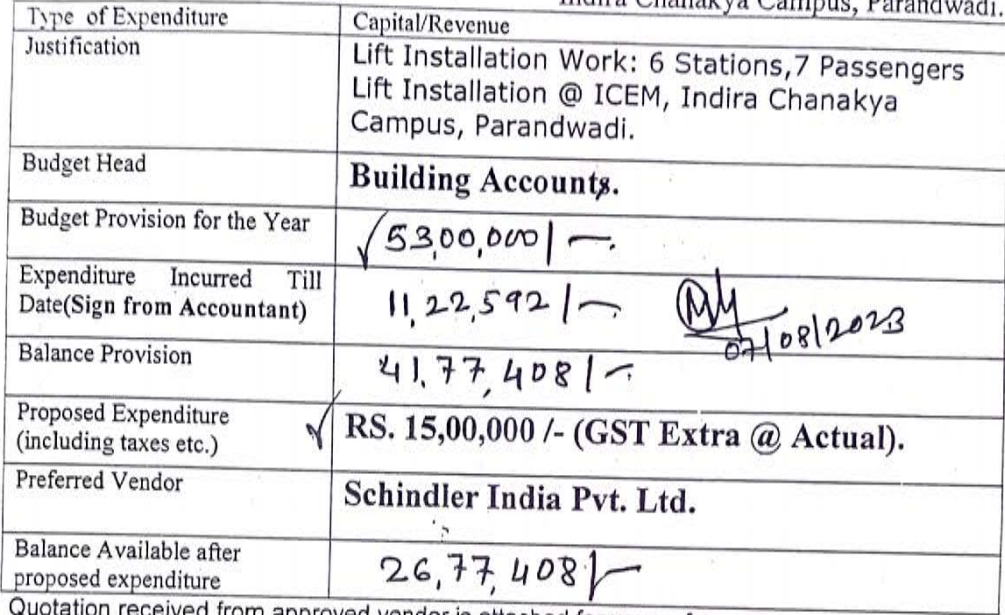 Indira Chanakya Campus, Parandwadi.
Type of Expenditure Capital/Revenue
Justification Lift Installation Work: 6 Stations,7 Passengers
Lift Installation @ ICEM, Indira Chanakya
Campus, Parandwadi.
Budget Head Building Accounts.
Budget Provision for the Year 53,00,000/-.
Expenditure Incurred Till
Date(Sign from Accountant) 11,22,592/-
07/08/2023
Balance Provision 41,77,408/-
Proposed Expenditure
(including taxes etc.) RS. 15,00,000 /- (GST Extra @ Actual).
Preferred Vendor Schindler India Pvt. Ltd.
Balance Available after
proposed expenditure 26,77,408/-
Quotation received from approved vendor is attached